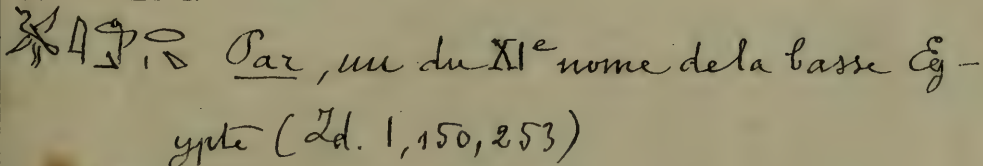 Par, uu du XIᵉ nome de la basse Eg-
ypte (Id. 1, 150, 253)